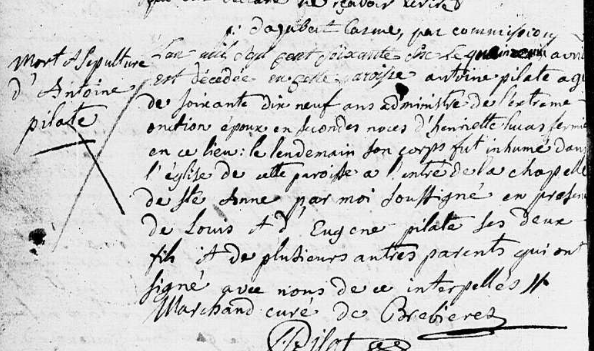 : dajubert Carme, par commission
Mort et sepulture
d'Antoine
pilate
l'an mil sept cent soixante six le quinze avril
est décédée en cette paroisse antoine pilate agé
de soixante dix neuf ans administré de l'extreme
onction époux en secondes noces d'henriette lucas fermier
en ce lieu : le lendemain son corps fut inhumé dans
l'église de cette paroisse a l'entré de la chapelle
de Ste Anne par moi soussigné en presence
de Louis et d'Eugene pilate ses deux
fils et de plusieurs autres parents qui ont
signé avec nous de ce interpelles //
Marchand curé de Brebieres
Pilat